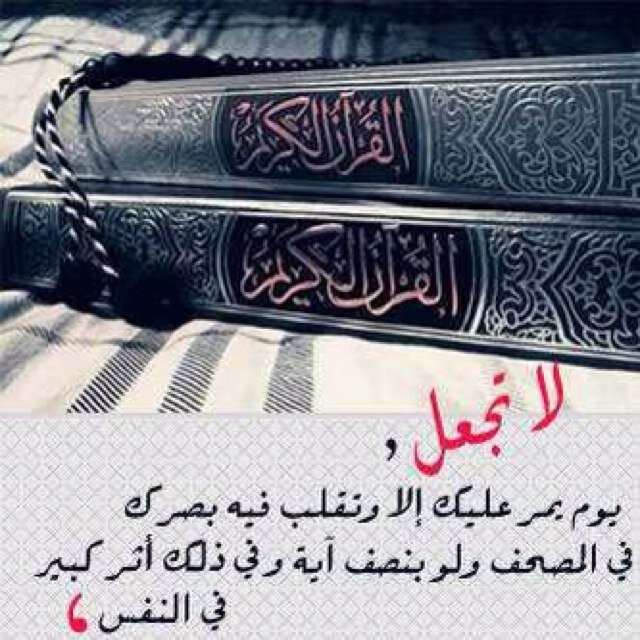 القرآن الكريم
القرآن الكريم
لا تجعل ,
يوم يمر عليك إلا وتقلب فيه بصرك
في المصحف ولو بنصف آية وفي ذلك أثر كبير
في النفس ,